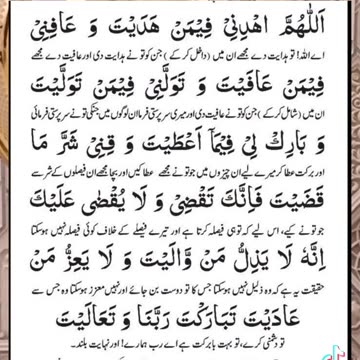 اَللّٰهُمَّ اهْدِنِیْ فِیْمَنْ هَدَیْتَ وَ عَافِنِیْ
اے اللہ! تو ہدایت دے مجھے ان میں (داخل کر کے) جن کو تو نے ہدایت دی اور عافیت دے مجھے
فِیْمَنْ عَافَیْتَ وَ تَوَلَّنِیْ فِیْمَنْ تَوَلَّیْتَ
ان میں (شامل کر کے) جن کو تو نے عافیت دی اور میری سرپرستی فرما ان لوگوں میں جنکی تو نے سرپرستی فرمائی
وَ بَارِكْ لِیْ فِیْمَاۤ اَعْطَیْتَ وَ قِنِیْ شَرَّ مَا
اور برکت عطا کر میرے لیے ان چیزوں میں جو تو نے مجھے عطا کیں اور بچا مجھے ان فیصلوں کے شر سے
قَضَیْتَ فَاِنَّكَ تَقْضِیْ وَ لَا یُقْضٰی عَلَیْكَ
جو تو نے کیے، اس لیے کہ تو ہی فیصلہ کرتا ہے اور تیرے فیصلے کے خلاف کوئی فیصلہ نہیں ہو سکتا
اِنَّهٗ لَا یَذِلُّ مَنْ وَّالَیْتَ وَ لَا یَعِزُّ مَنْ
حقیقت یہ ہے کہ وہ ذلیل نہیں ہو سکتا جس کا تو دوست بن جائے اور نہیں معزز ہو سکتا وہ جس سے
عَادَیْتَ تَبَارَكْتَ رَبَّنَا وَ تَعَالَیْتَ
تو دشمنی کرے، تو بہت بابرکت ہے اے رب ہمارے! اور نہایت بلند۔